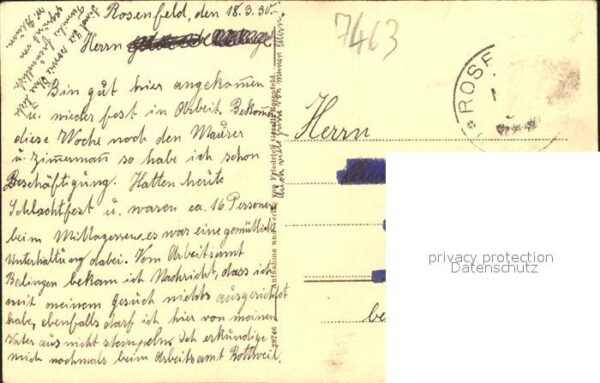 Rosenfeld, den 18.3.30.
Herrn
Bin gut hier angekommen
u. wieder fest in Arbeit. Bekomme
diese Woche noch den Maurer
u. Zimmermann so habe ich schon
Beschäftigung. Hatten heute
Schlachtfest u. waren ca. 16 Personen
beim Mittagessen, es war eine gemütliche
Unterhaltung dabei. Vom Arbeitsamt
Balingen bekam ich Nachricht, dass ich
mit meinem Gesuch nichts ausgerichtet
habe, ebenfalls darf ich hier von meinem
Vater aus nicht stempeln. Ich erkundige
mich nochmals beim Arbeitsamt Rottweil.
auch viele Grüße von meinen Eltern.
28746
7463
Herrn
ROSE
be
privacy protection
Datenschutz